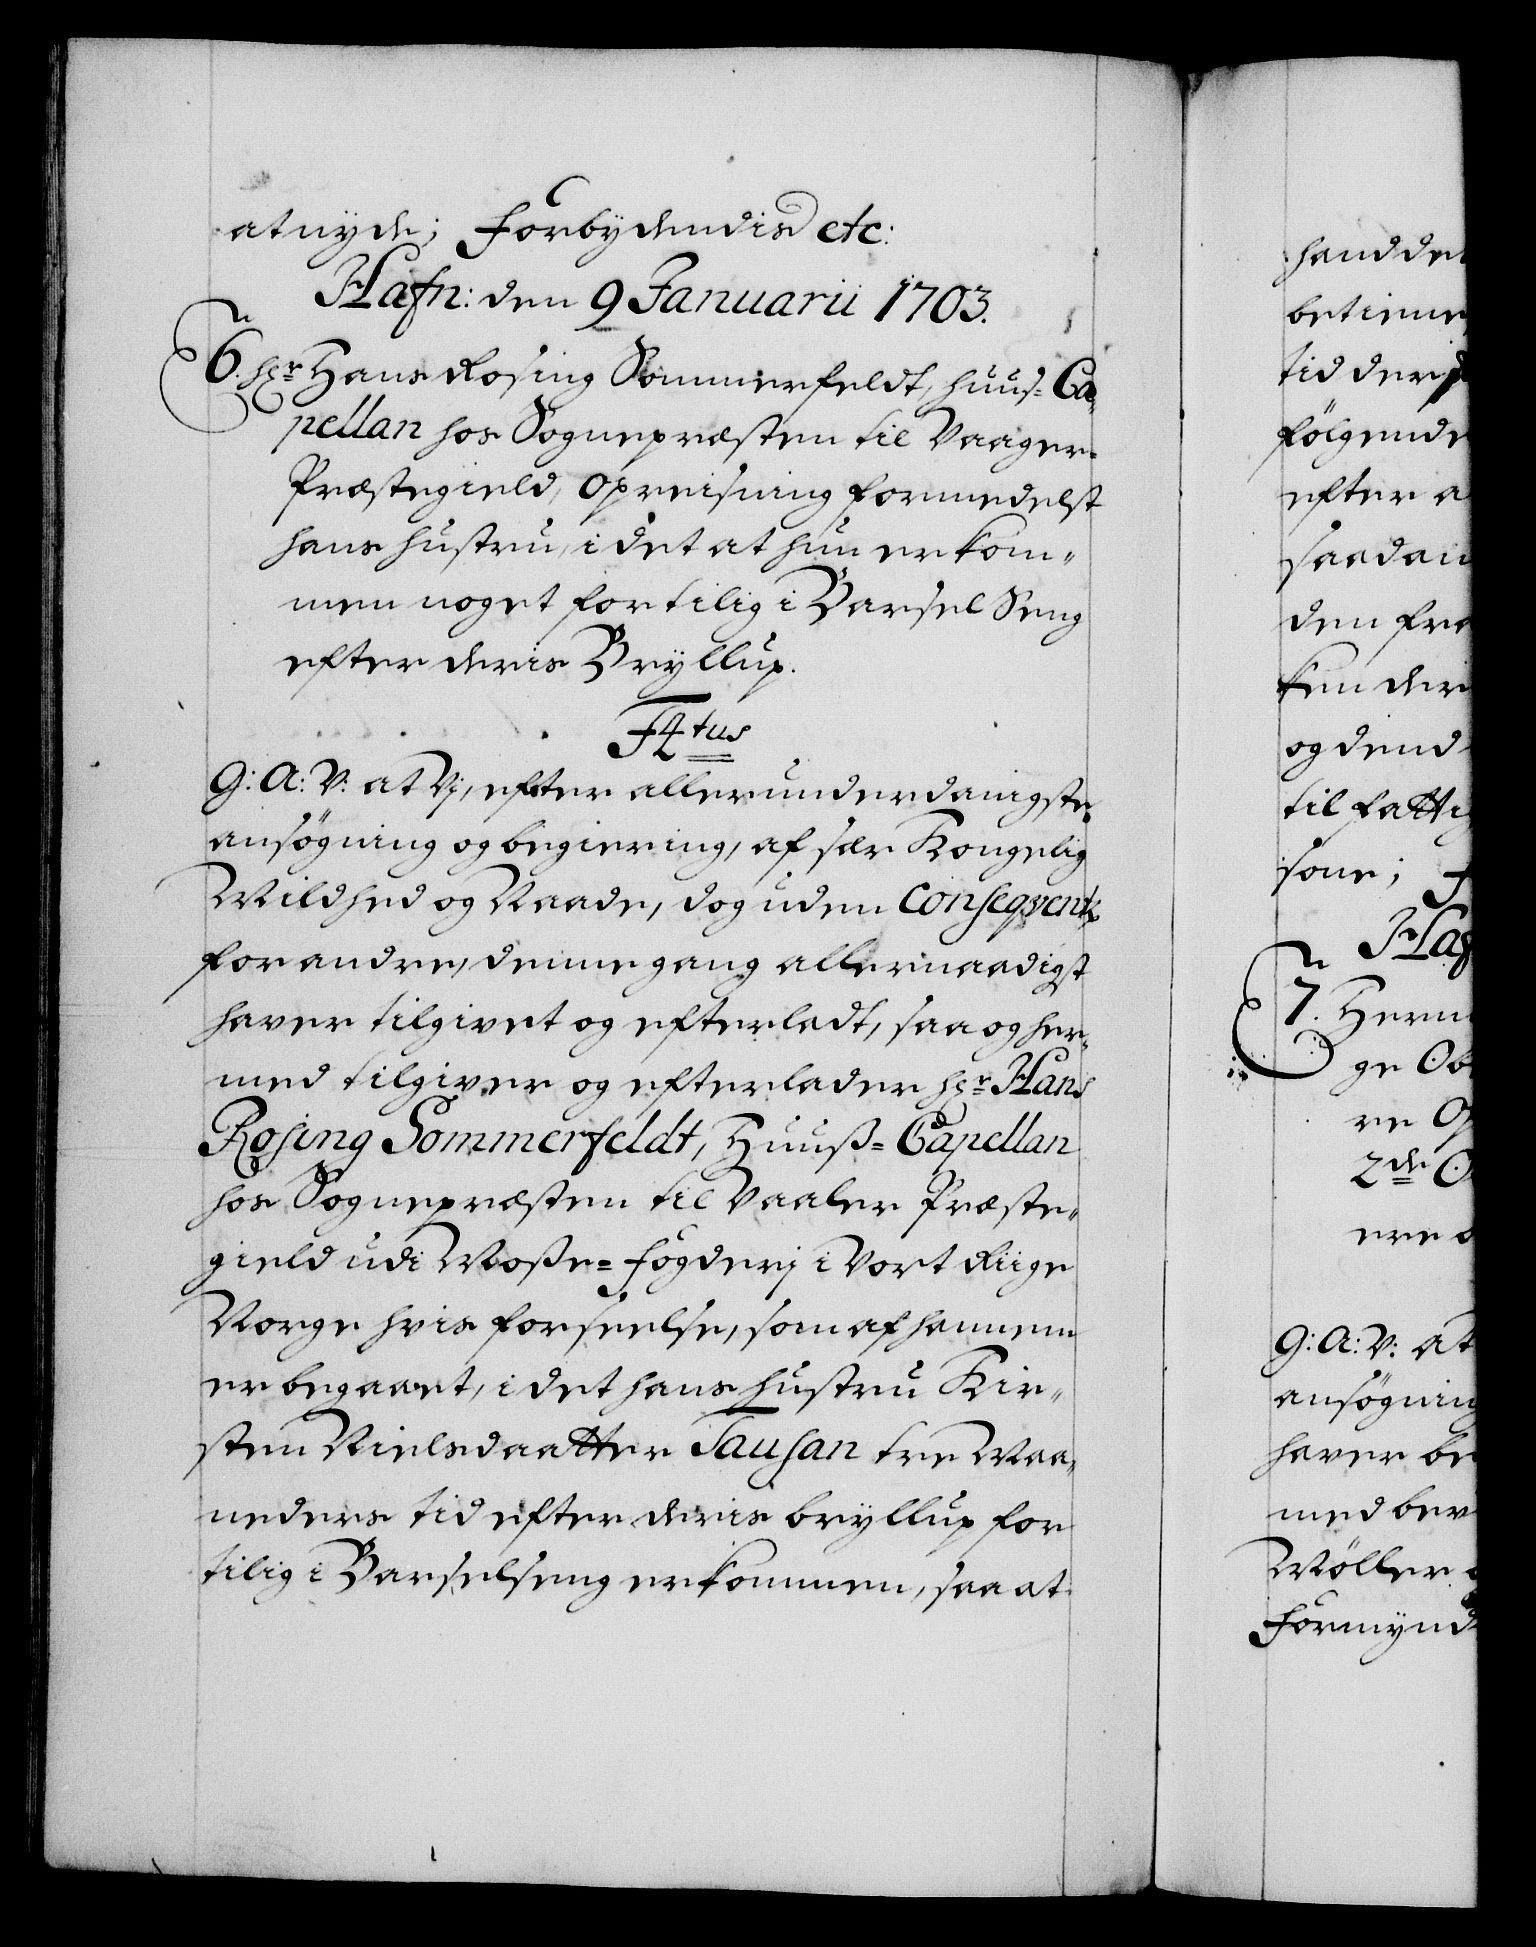 at nyde; Forbydendis etc:
Hafn: den 9 Januarii 1703.
6. hr Hans Rosing Sommerfeldt, huus= Ca„
pellan hos Sognepræsten til Vaager=
Præstegield, Opreisning formedelst
hans hustru, i det at hun er kom„
men noget for tilig i Barsel Seng
efter deris Bryllup.
F4tus
G: A: V: at Vj, efter allerunderdanigste
ansøgning og begiering, af sær Kongelig
Mildhed og Naade, dog uden Conseqventz
for andre, denne gang allernaadigst
haver tilgivet og efterladt, saa og her„
med tilgiver og efterlader hr Hans
Rosing Sommerfeldt, Huuß= Capellan
hos Sognepræsten til Vaaler Præste„
gield udi Moße= fogderj i Vort Riige
Norge hvis forseelse, som af hannem
er begaaet, i det hans hustru Kir„
sten Nielsdaatter Tausan tre Maa„
neders tid efter deris bryllup for
tilig i Barselseng er kommen, saa at
hand det
betiene
tid der
følgende
efter a
saadan
den fra
ken der
og dend
til fattig
sone; F
Haf
7. Herm
ge Ob
re O
2de O
ere o
G: A: V: at
ansøgning
haver be
med bev
Møller
Formynd